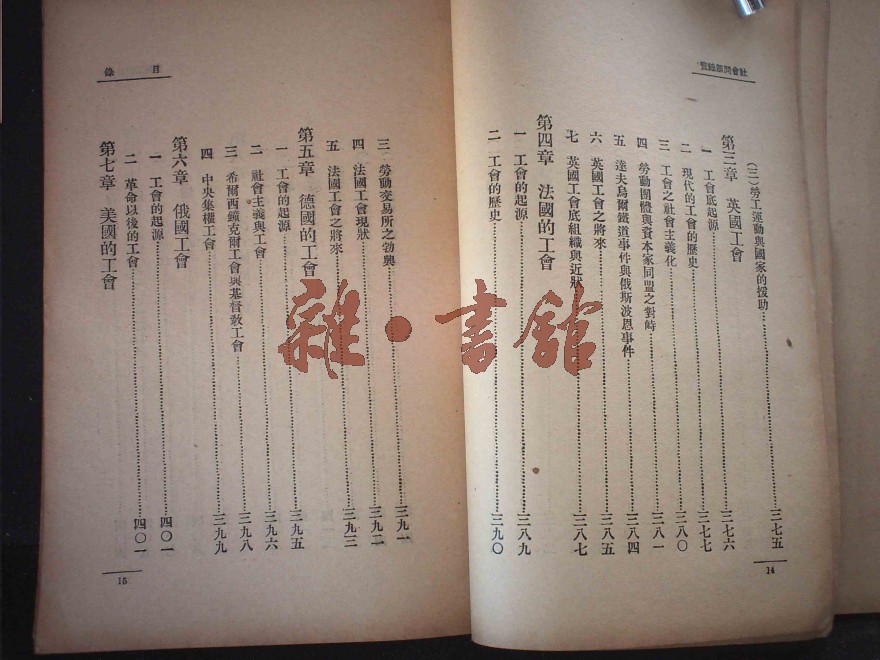 社會問題總覽
(三)勞工運動與國家的援助……三七五
第三章 英國工會
一 工會底起源……三七六
二 現代的工會的歷史……三七七
三 工會之社會主義化……三八〇
四 勞動團體與資本家同盟之對峙……三八一
五 達夫烏爾鐵道事件與俄斯波恩事件……三八四
六 英國工會之將來……三八五
七 英國工會底組織與近狀……三八七
第四章 法國的工會
一 工會的起源……三八九
二 工會的歷史……三九〇
14
目錄
三 勞動交易所之勃興……三九一
四 法國工會現狀……三九二
五 法國工會之將來……三九三
第五章 德國的工會
一 工會的起源……三九五
二 社會主義與工會……三九六
三 希爾西鐘克爾工會與基督教工會……三九八
四 中央集權工會……三九九
第六章 俄國工會
一 工會的起源……四〇一
二 革命以後的工會……四〇一
第七章 美國的工會
15
雜·書館